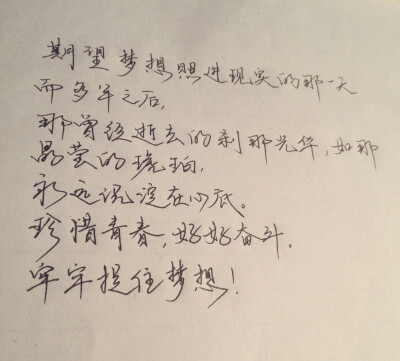 期望梦想照进现实的那一天
而多年之后,
那曾经逝去的刹那光华,如那
晶莹的琥珀,
永远沉淀在心底。
珍惜青春,好好奋斗,
牢牢捉住梦想!